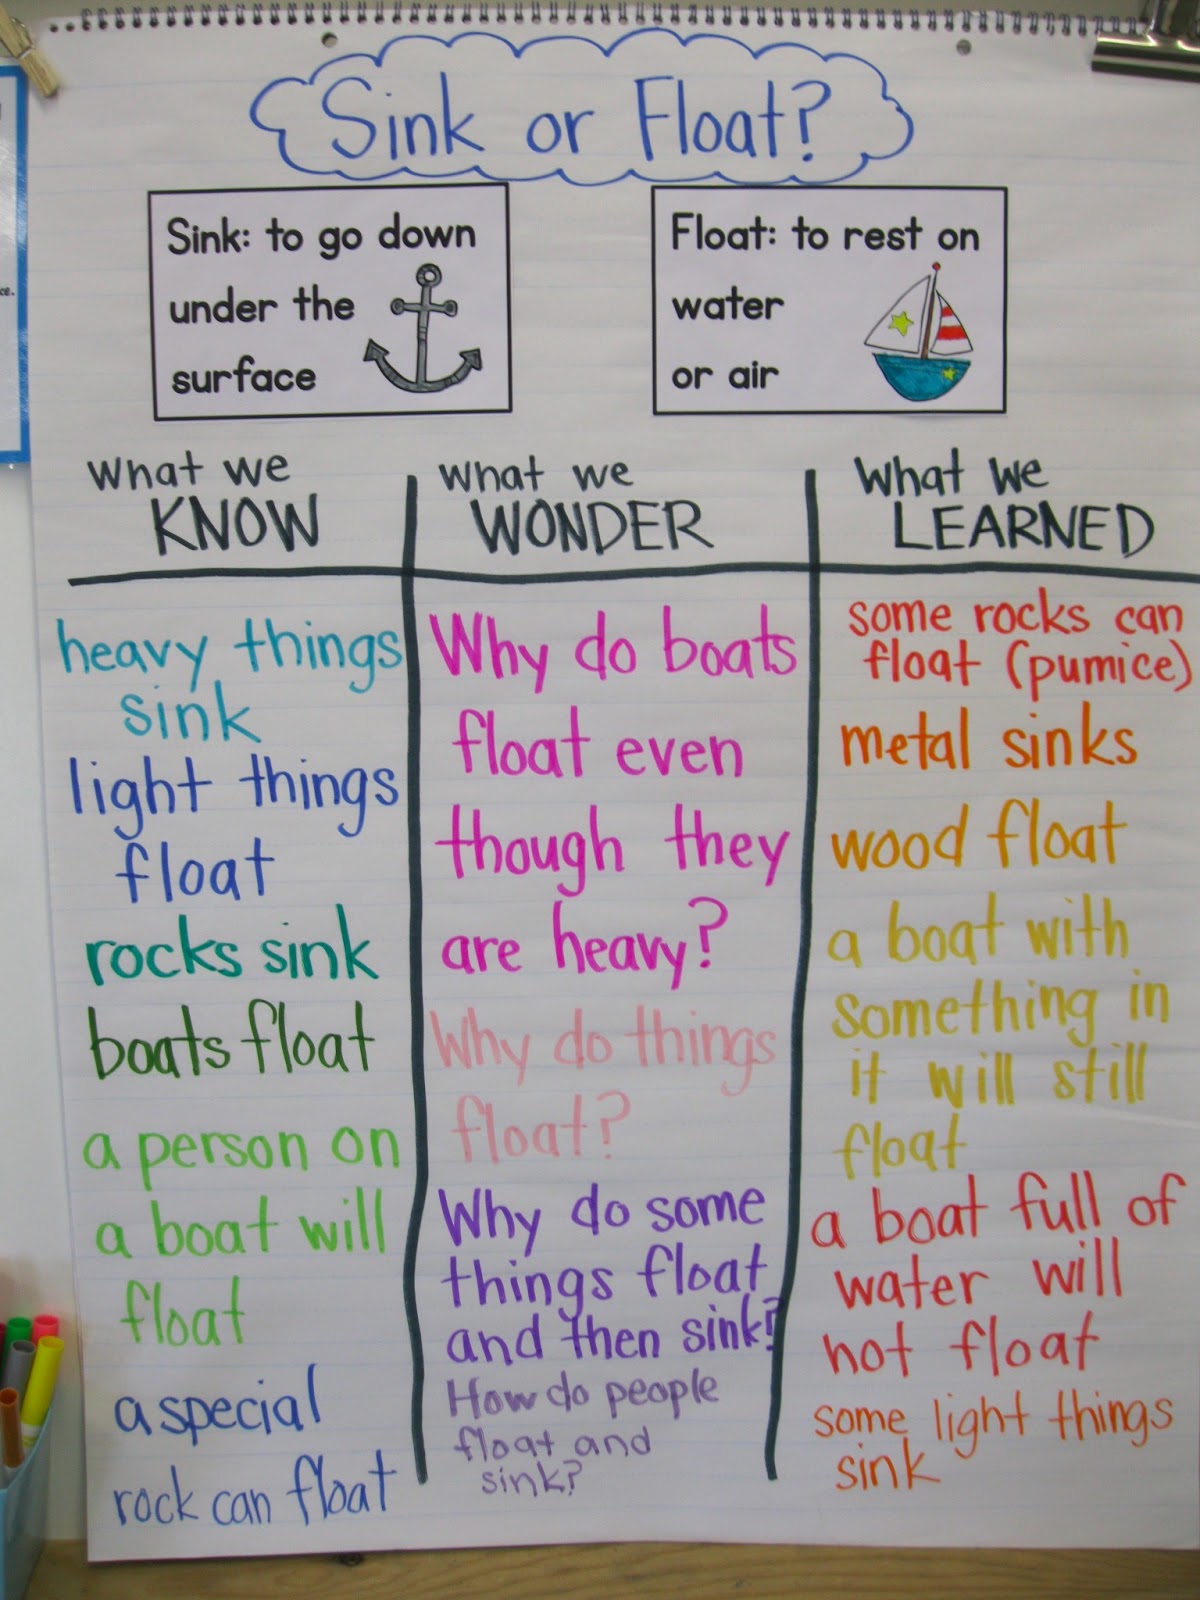 Sink or Float?
Sink: to go down
under the
surface
Float: to rest on
water
or air
What we
KNOW
heavy things
sink
light things
float
rocks sink
boats float
a person on
a boat will
float
a special
rock can float
What we
WONDER
Why do boats
float even
though they
are heavy?
Why do things
float?
Why do some
things float
and then sink?
How do people
float and
sink?
What we
LEARNED
some rocks can
float (pumice)
metal sinks
wood float
a boat with
something in
it will still
float
a boat full of
water will
not float
some light things
sink